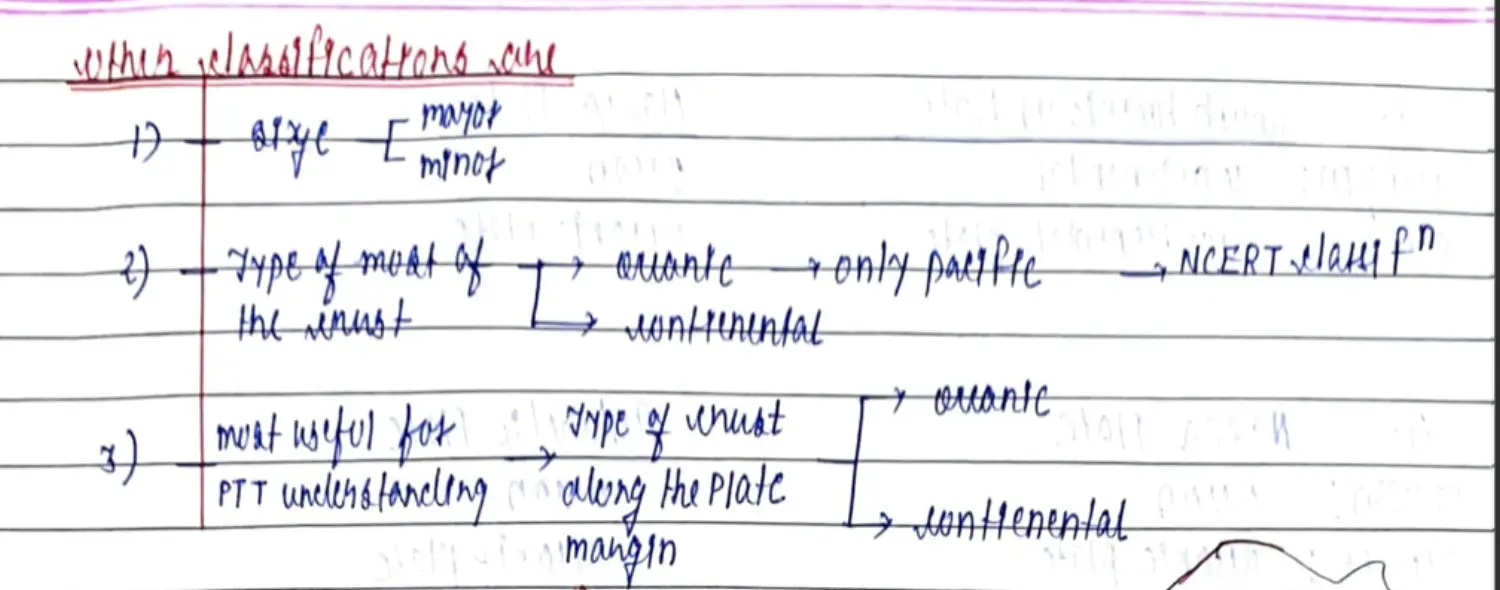 other classifications are
1) — size — [ major
minor
2) — Type of most of → oceanic → only pacific → NCERT classifⁿ
the crust → contienental
3) — most useful for → Type of crust → oceanic
PTT understanding along the Plate → contienental
margin